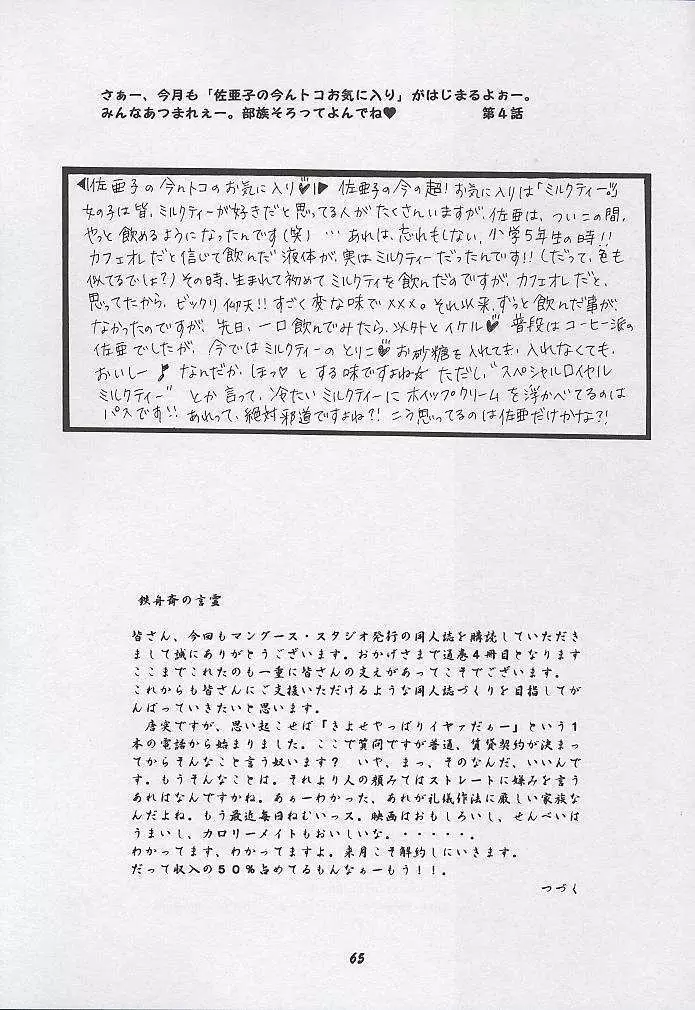 さぁー、今月も「佐亜子の今んトコお気に入り」がはじまるよぉー。
みんなあつまれぇー。部族そろってよんでね♥ 第４話
佐亜子の今んトコのお気に入り♥ 佐亜子の今の超!お気に入りは「ミルクティー」。
女の子は皆、ミルクティーが好きだと思ってる人がたくさんいますが、佐亜は、ついこの間、
やっと飲めるようになったんです(笑) …あれは、忘れもしない、小学5年生の時!!
カフェオレだと信じて飲んだ液体が、実はミルクティーだったんです!!(だって、色も
似てるでしょ?)その時、生まれて初めてミルクティを飲んだのですが、カフェオレだと、
思ってたから、ビックリ仰天!!すごく変な味で×××。それ以来、ずっと飲んだ事が、
なかったのですが、先日、一口飲んでみたら、以外とイケル♥ 普段はコーヒー派の
佐亜でしたが、今ではミルクティーのとりこ♥お砂糖を入れても、入れなくても、
おいしー♪なんだか、ほっ♡とする味ですよね☆ ただし、"スペシャルロイヤル
ミルクティー"とか言って、冷たいミルクティーにホイップクリームを浮かべてるのは
パスです!!あれって、絶対邪道ですよね?!こう思ってるのは佐亜だけかな?!
鉄舟斎の言霊
皆さん、今回もマングース・スタジオ発行の同人誌を購読していただき
まして誠にありがとうございます。おかげさまで通巻４冊目となります
ここまでこれたのも一重に皆さんの支えがあってこそでございます。
これからも皆さんにご支援いただけるような同人誌づくりを目指してが
んばっていきたいと思います。
唐突ですが、思い起こせば「きよせやっぱりイヤァだぁー」という１
本の電話から始まりました。ここで質問ですが普通、賃貸契約が決まっ
てからそんなこと言う奴います？ いや、まっ、そのなんだ、いいんで
す。もうそんなことは。それより人の顔みてはストレートに嫌みを言う
あれはなんですかね。あぁーわかった、あれが礼儀作法に厳しい家族な
んだよね。もう最近毎日ねむいっス。映画はおもしろいし、せんべいは
うまいし、カロリーメイトもおいしいな。・・・・・。
わかってます、わかってますよ。来月こそ解約しにいきます。
だって収入の５０％占めてるもんなぁーもう！！。
つづく
65